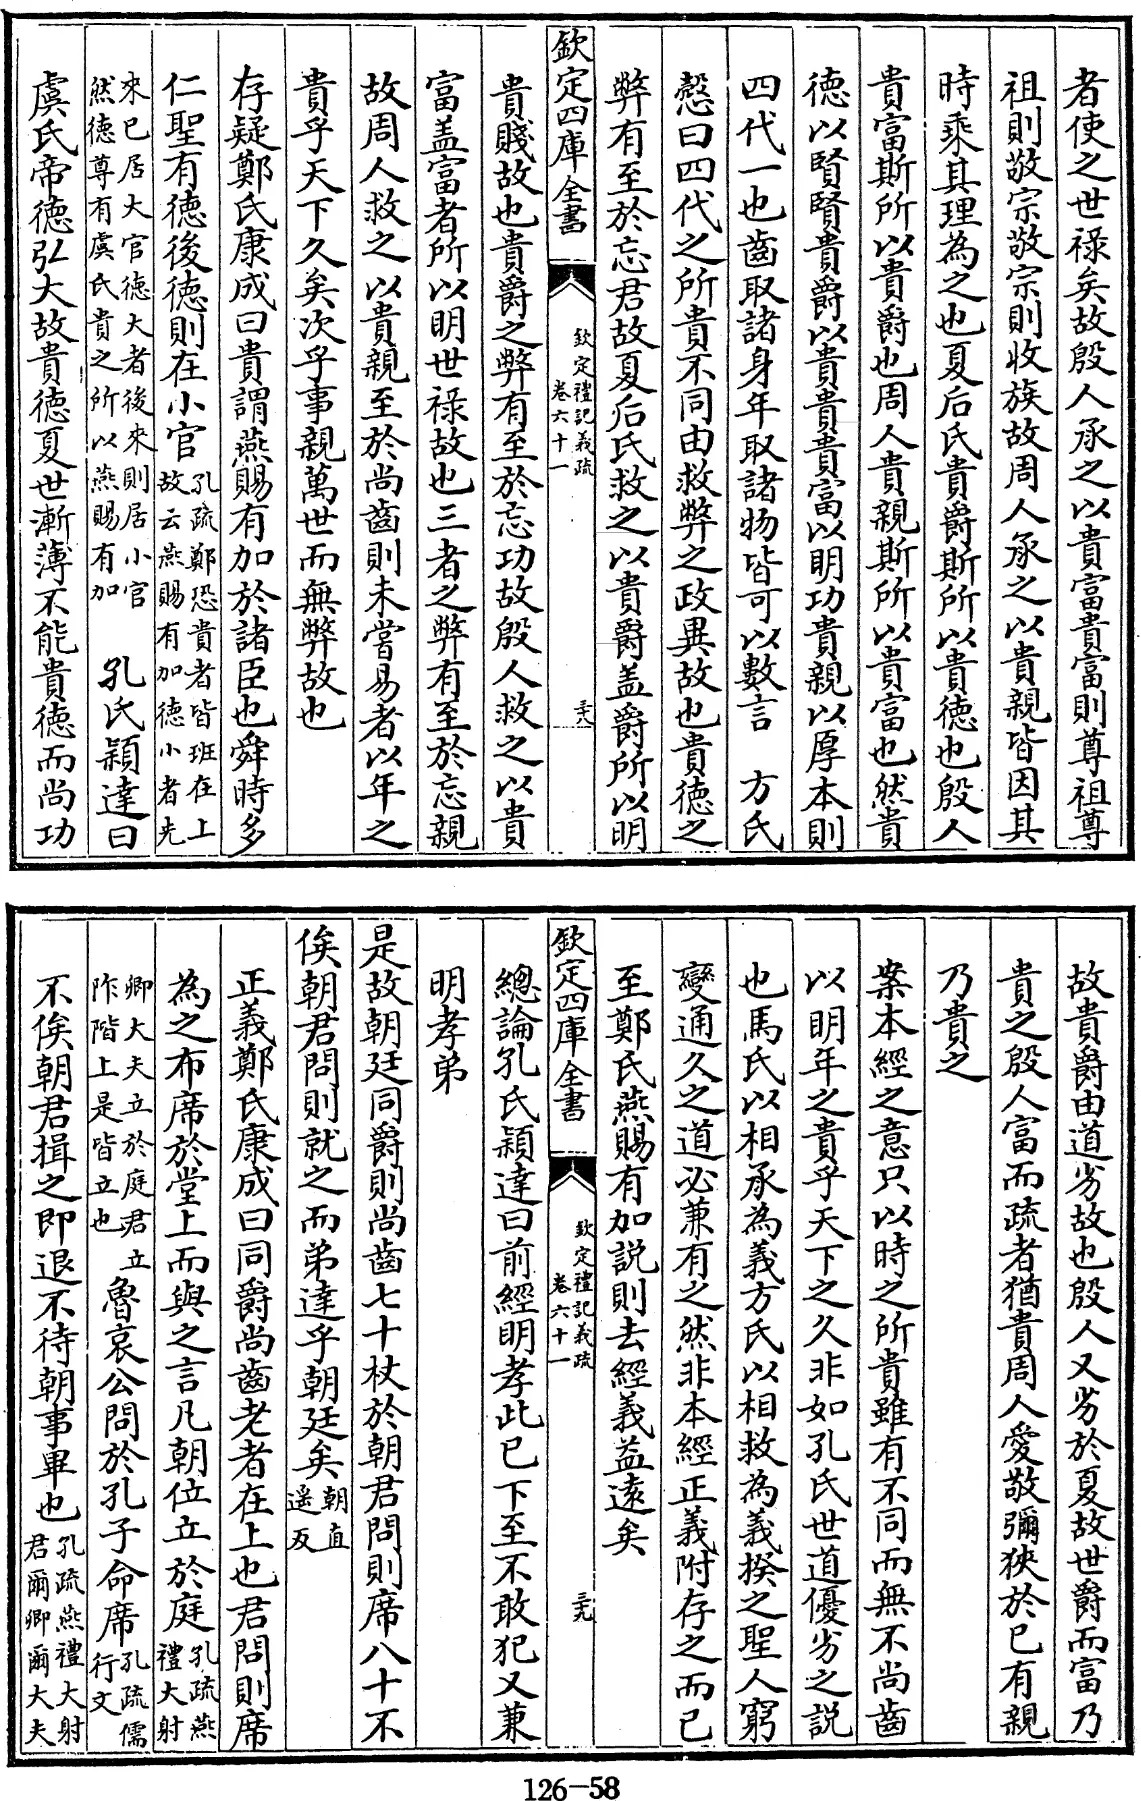 者使之世祿矣故殷人承之以貴富貴富則尊祖尊
祖則敬宗敬宗則收族故周人承之以貴親皆因其
時乘其理為之也夏后氏貴爵斯所以貴德也殷人
貴富斯所以貴爵也周人貴親斯所以貴富也然貴
德以賢賢貴爵以貴貴貴富以明功貴親以厚本則
四代一也齒取諸身年取諸物皆可以數言　方氏
慤曰四代之所貴不同由救弊之政異故也貴德之
弊有至於忘君故夏后氏救之以貴爵盖爵所以明
欽定四庫全書
欽定禮記義疏
卷六十一
三十八
貴賤故也貴爵之弊有至於忘功故殷人救之以貴
富盖富者所以明世祿故也三者之弊有至於忘親
故周人救之以貴親至於尚齒則未嘗易者以年之
貴乎天下久矣次乎事親萬世而無弊故也
存疑鄭氏康成曰貴謂燕賜有加於諸臣也舜時多
仁聖有德後德則在小官孔疏鄭恐貴者皆班在上故云燕賜有加德小者先
來已居大官德大者後來則居小官然德尊有虞氏貴之所以燕賜有加　孔氏穎達曰
虞氏帝德弘大故貴德夏世漸薄不能貴德而尚功
故貴爵由道劣故也殷人又劣於夏故世爵而富乃
貴之殷人富而疏者猶貴周人愛敬彌狹於己有親
乃貴之
案本經之意只以時之所貴雖有不同而無不尚齒
以明年之貴乎天下之久非如孔氏世道優劣之説
也馬氏以相承為義方氏以相救為義揆之聖人窮
變通久之道必兼有之然非本經正義附存之而已
至鄭氏燕賜有加説則去經義益遠矣
欽定四庫全書
欽定禮記義疏
卷六十一
三十九
總論孔氏穎達曰前經明孝此已下至不敢犯又兼
明孝弟
是故朝廷同爵則尚齒七十杖於朝君問則席八十不
俟朝君問則就之而弟達乎朝廷矣朝直遥反
正義鄭氏康成曰同爵尚齒老者在上也君問則席
為之布席於堂上而與之言凡朝位立於庭孔疏燕禮大射
卿大夫立於庭君立阼階上是皆立也魯哀公問於孔子命席孔疏儒行文
不俟朝君揖之即退不待朝事畢也孔疏燕禮大射君爾卿爾大夫
126-58